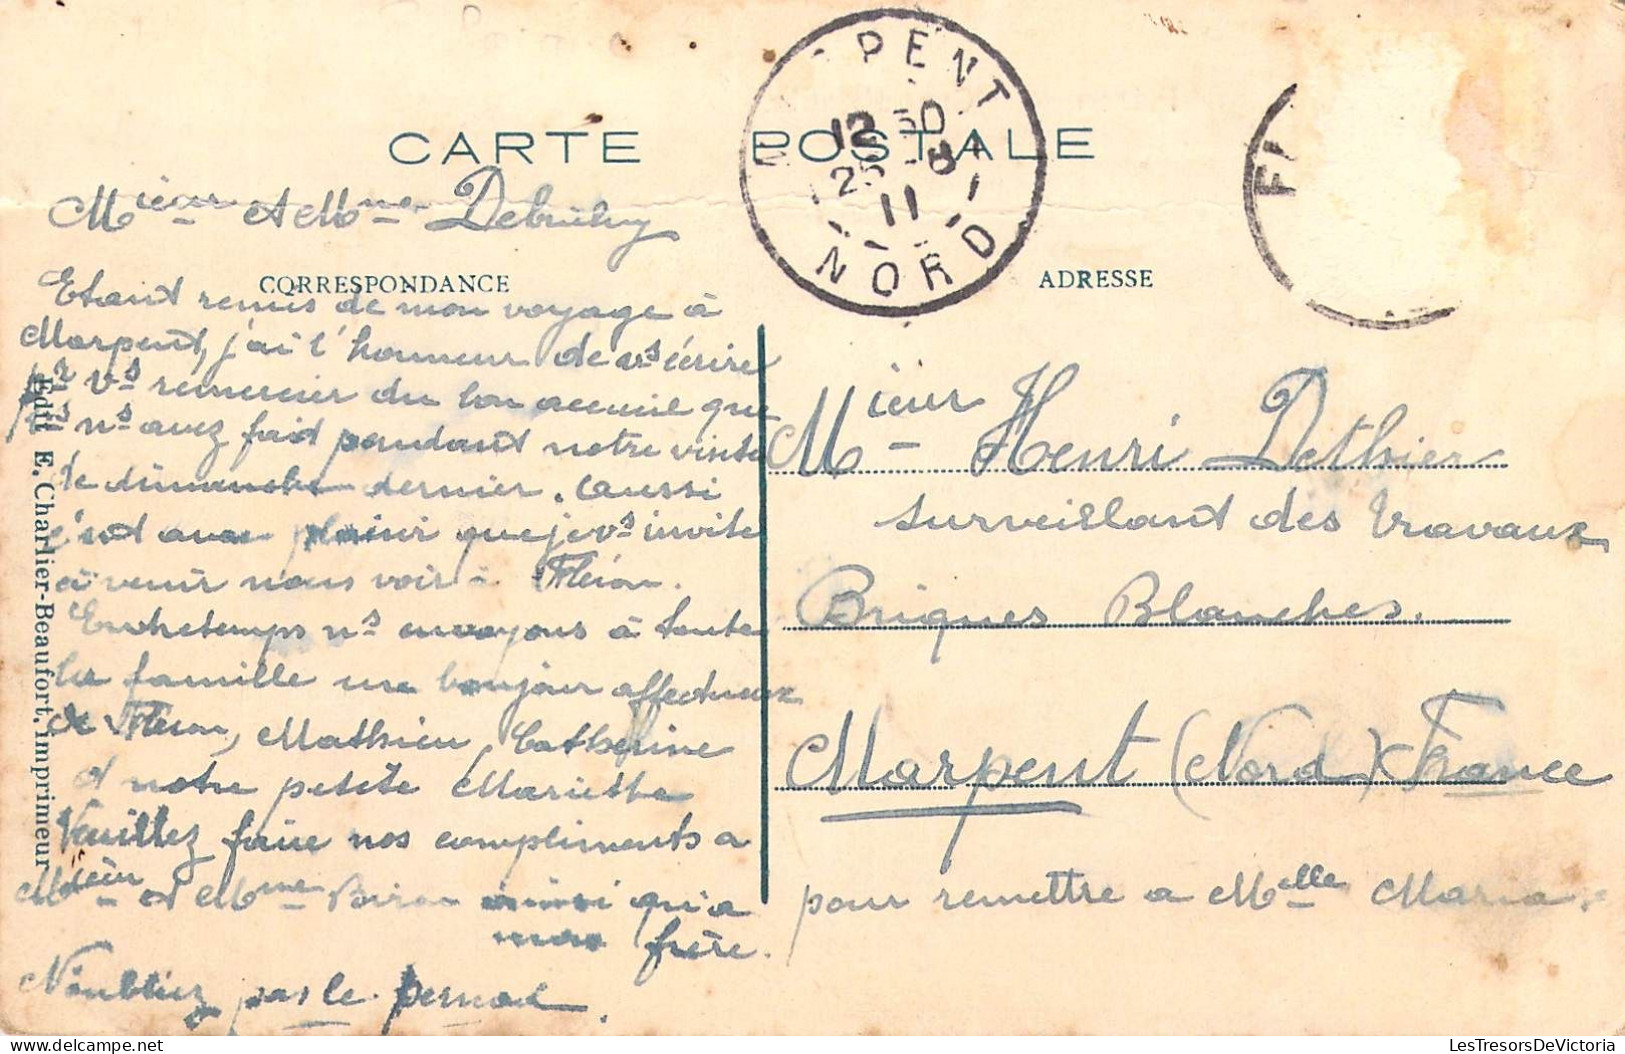 CARTE POSTALE
PENT
12 30
25 8
11
NORD
FL
CORRESPONDANCE
ADRESSE
Mieur et Mme
Etant remis de mon voyage à
Marpent, j'ai l'honneur de vs écrire
pr vs remercier du bon accueil que
vs ns avez fait pendant notre visite
de dimanche dernier. Aussi
c'est avec plaisir que je vs invite
à venir nous voir à Fléron.
Entretemps ns envoyons à toute
la famille un bonjour affectueux
de Fléron, Mathieu, Catherine
et notre petite Mariette
Veuillez faire nos compliments a
Msieur et Mme Biron ainsi qu'a
mon frère.
N'oubliez pas le pernod.
Mieur Henri Dethier
surveillant des travaux
Briques Blanches.
Marpent (Nord) France
pour remettre a Melle Maria
Edit E. Charlier-Beaufort, imprimeur
LesTresorsDeVictoria